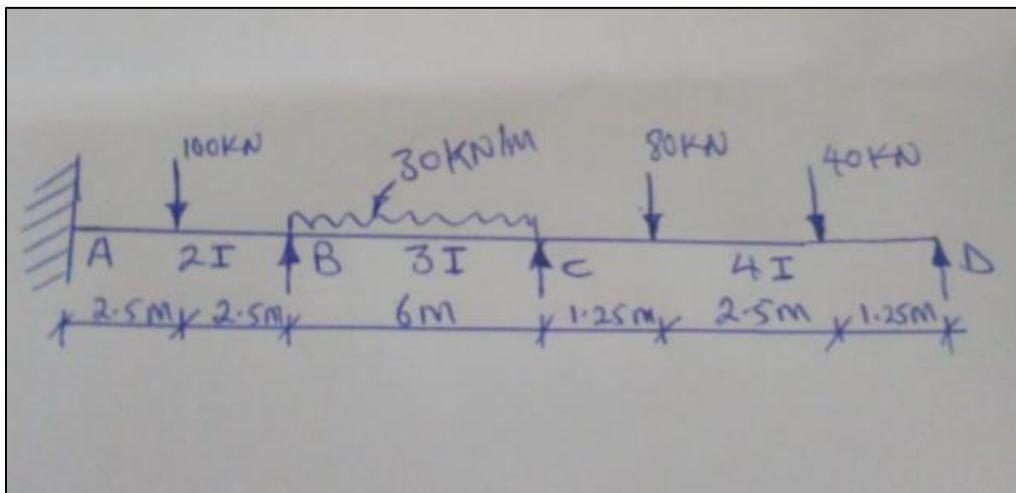 100KN 30KN/M 80KN 40KN
A 2I B 3I C 4I D
2.5m 2.5m 6m 1.25m 2.5m 1.25m